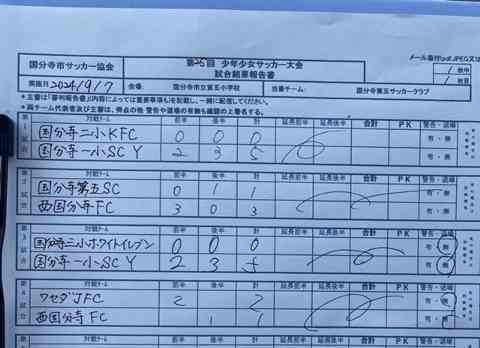 国分寺市サッカー協会
第25回 少年少女サッカー大会
試合結果報告書
実施日 2024/9/7 会場: 国分寺市立第五小学校 担当チーム: 国分寺第五サッカークラブ
*主審は「審判報告書」の内容によっては重要事項も記載し、一緒に配信してください。
*両チーム代表者及び主審は、得点の他 警告や退場の有無も確認の上署名する。
第1試合 対戦チーム 前半 後半 計 延長前半 延長後半 合計 PK 警告・退場
国分寺二小KFC 0 0 0 有・無
国分寺一小SC Y 2 3 5 有・無
第2試合 対戦チーム 前半 後半 計 延長前半 延長後半 合計 PK 警告・退場
国分寺第五SC 0 1 1 有・無
西国分寺FC 3 0 3 有・無
第3試合 対戦チーム 前半 後半 計 延長前半 延長後半 合計 PK 警告・退場
国分寺二小ホワイトイレブン 0 0 0 有・無
国分寺一小SC Y 2 3 5 有・無
第4試合 対戦チーム 前半 後半 計 延長前半 延長後半 合計 PK 警告・退場
ワセダJFC 2 2 有・無
西国分寺FC 1 1 有・無